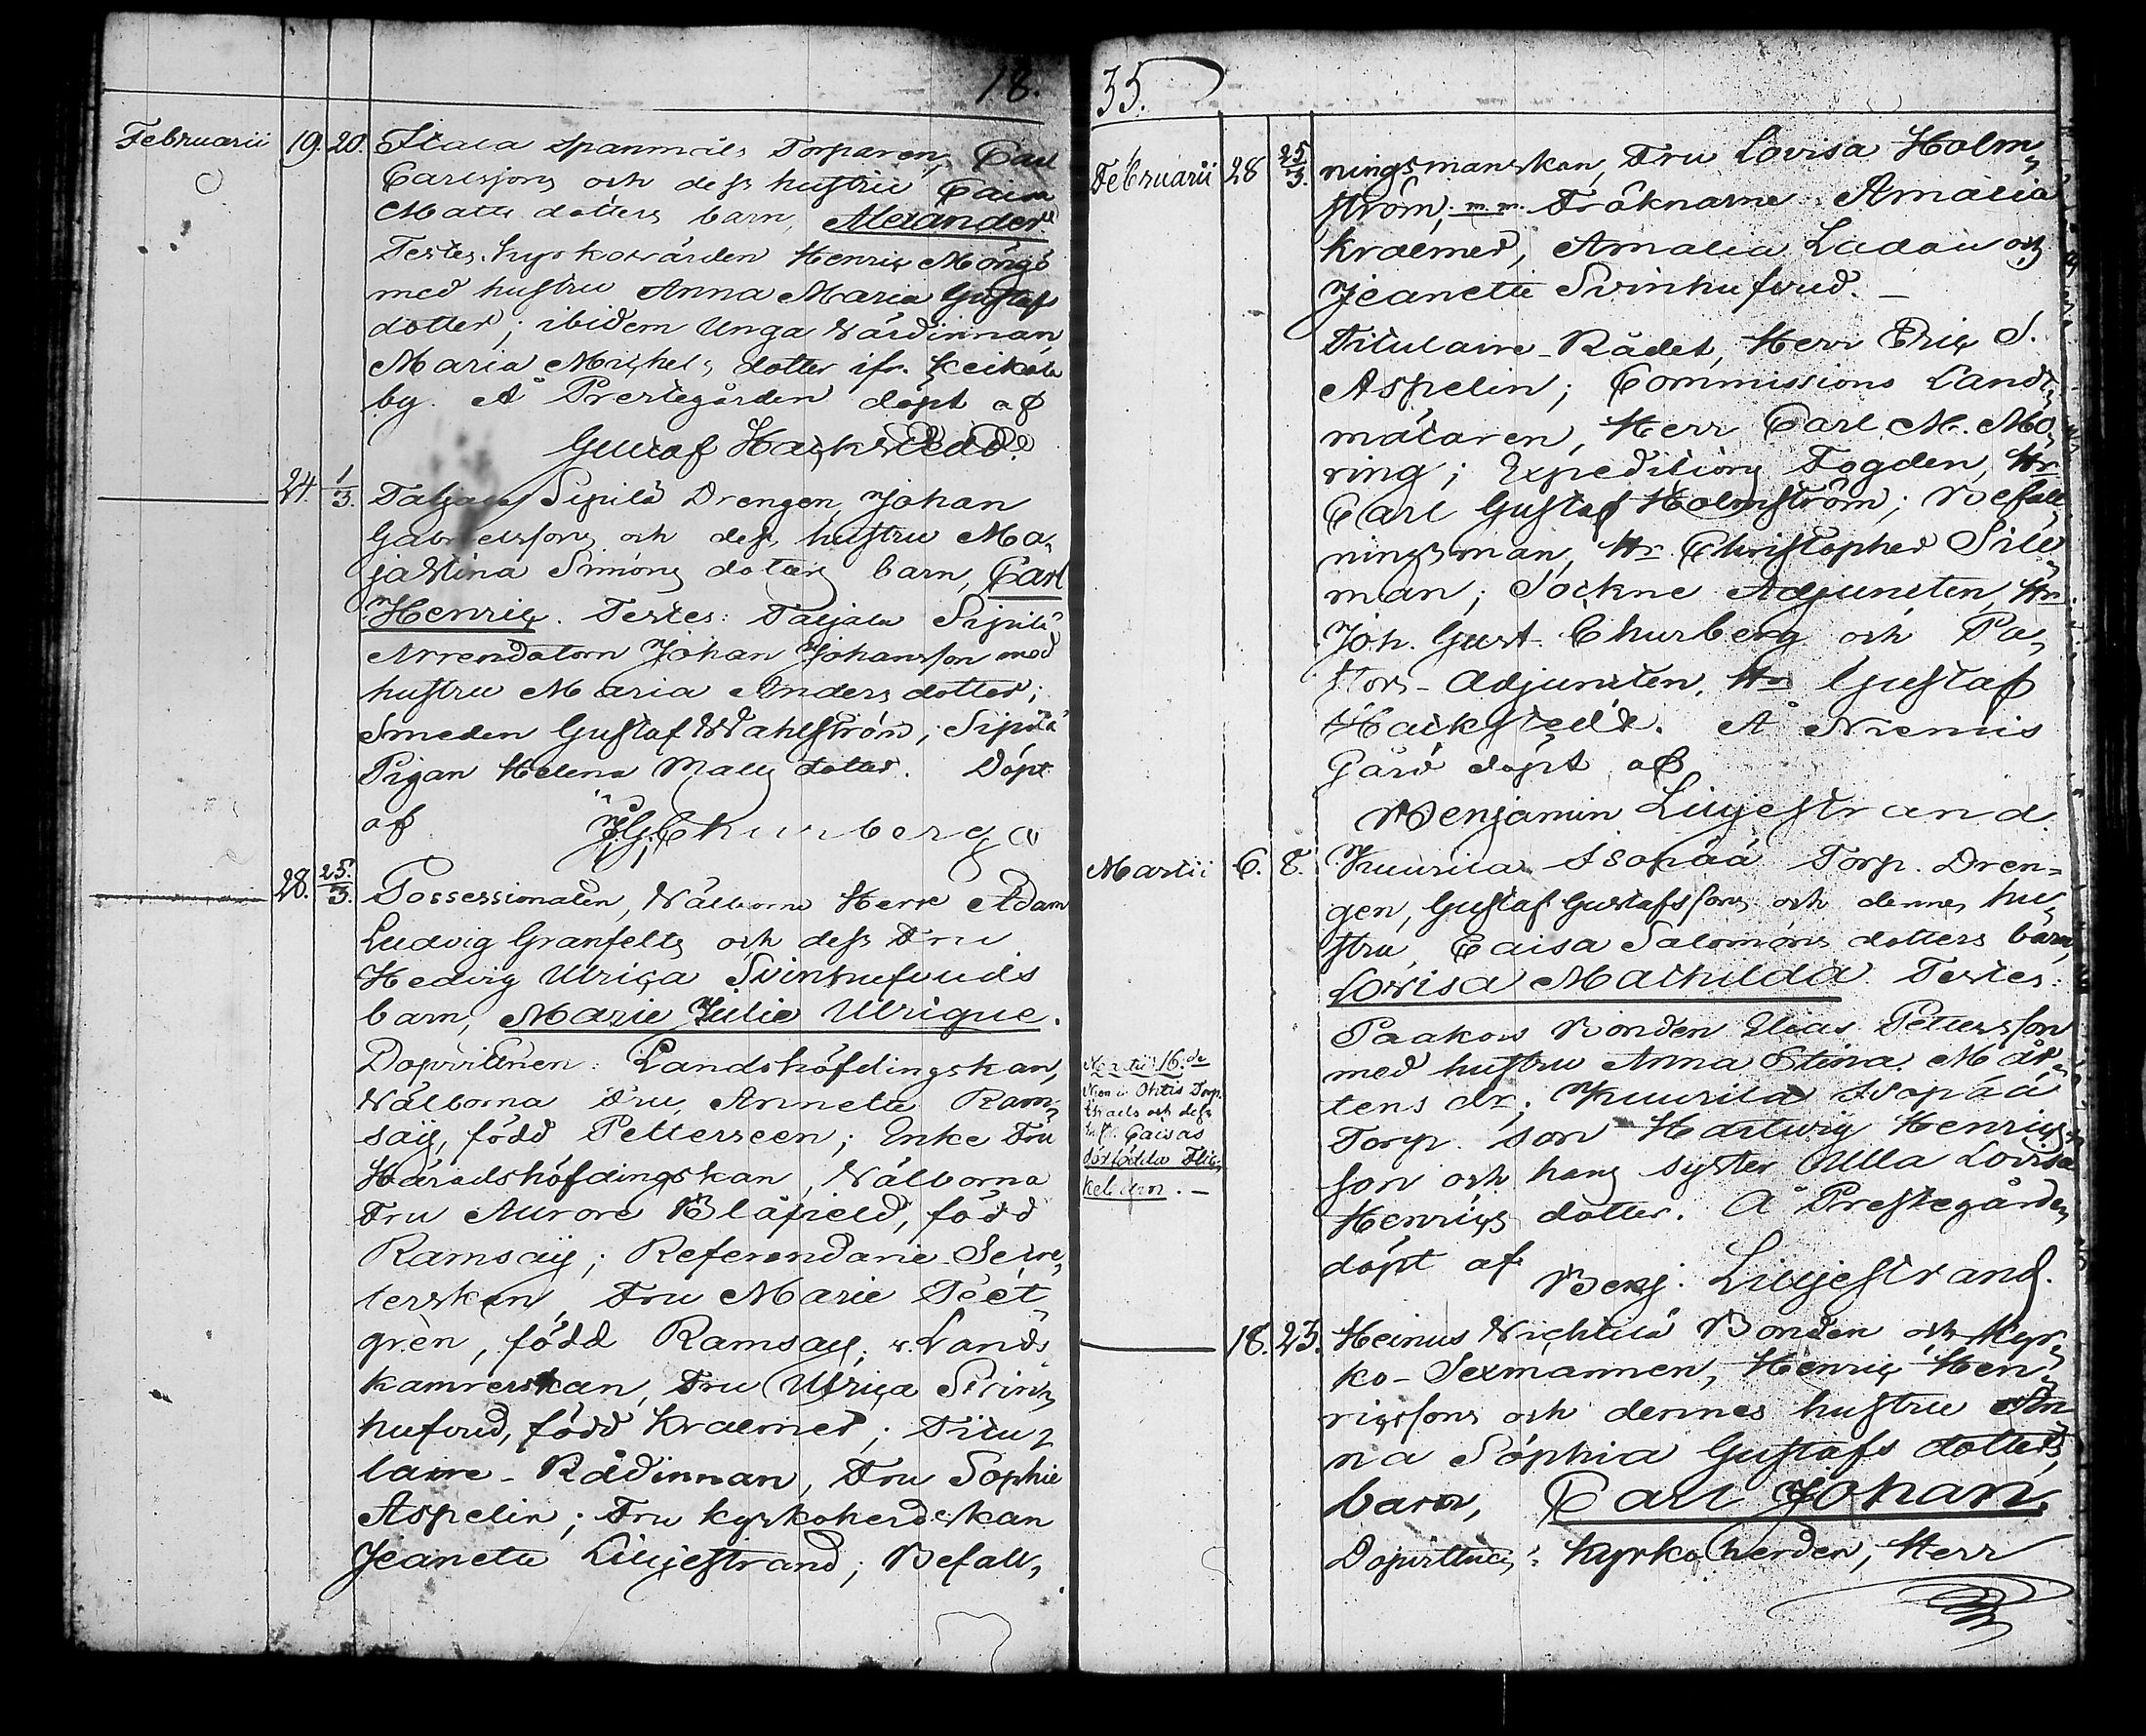 18.
Februarii 19. 20. Stala Spanmåls Torparen, Carl
Carlssons och dess hustru Caisa
Matts dotters barn, Alexander.
Testes: Kyrkovärden Henric
med hustru Anna Maria Gustafs
dotter; ibidem Unga Värdinnan
Maria Michels dotter ifr. Keikala
by. Å Prestegården döpt af
Gustaf Hacksted.
24. 1/3. Taljala Sipilä Drengen, Johan
Gabrielssons och dess hustru Ma,
jastina Simons dotters barn, Carl
Henric. Testes: Taljala Sipilä
Arrendatorn Johan Johansson med
hustru Maria Anders dotter;
Smeden Gustaf Wahlström; Sipilä
Pigan Helena Matts dotter. Döpt
af J. G. Churberg
28. 25./3. Possessionaten, Välborne Herr Adam
Ludvig Granfelts och dess Fru
Hedvig Ulrica Svinhufvuds
barn, Marie Julie Ulrique.
Dopvittnen: Landshöfdingskan,
Välborna Fru, Annette Ram,
say, född Petterseen; Enke Fru
Häradshöfdingskan, Välborna
Fru Aurore Blåfield, född
Ramsay; Referendarie Secre,
terskan, Fru Marie Teet,
grèn, född Ramsay; v. Lands
kamrerskan, Fru Ulrica Svin,
hufvud, född Kraemer; Titu,
laire-Rådinnan, Fru Sophie
Aspelin; Fru Kyrkoherdeskan
Jeanette Liljestrand; Befall,
35.
Februarii 28 25/3. ningsmanskan, Fru Lovisa Holm,
ström, m.m. Fröknarne Amalia
Kraemer, Amalia Ladau och
Jeanette Svinhufvud. —
Titulaire-Rådet, Herr Eric S.
Aspelin; Commissions Landt,
mätaren, Herr Carl M. Mo,
ring; Expeditions Fogden, Hr
Carl Gustaf Holmström; Befall,
ningsman, Hr Christopher Sill,
man; Sockne Adjuncten, Hr
Joh. Gust. Churberg och Pa,
stors-Adjuncten, Hr Gustaf
Hackstedt. Å Niemis
Gård döpt af
Benjamin Liljestrand.
Martii 6. 8. Kuurila Isopää Torp. Dren=
gen, Gustaf Gustafssons och dennes hu,
stru, Caisa Salomons dotters barn,
Lovisa Mathilda. Testes:
Paakois Bonden Elias Pettersson
med hustru Anna Stina Mår,
tens dr; Kuurila Isopää
Torp. son Hartvig Henrics
son och hans syster Ulla Lovisa
Henrics dotter. Å Prestegården
döpt af
Benj. Liljestrand.
Martii 16.de
Ohtis Torp.
Israels och dess
h. Caisas
dödfödda Flic,
kebarn. —
18. 23. Heinus Vichtilä Bonden och Kyr,
ko-Sexmannen, Henric Hen,
ricssons och dennes hustru An
na Sophia Gustafs dotters
barn, Carl Johan.
Dopvittnen: Kyrkoherden, Herr